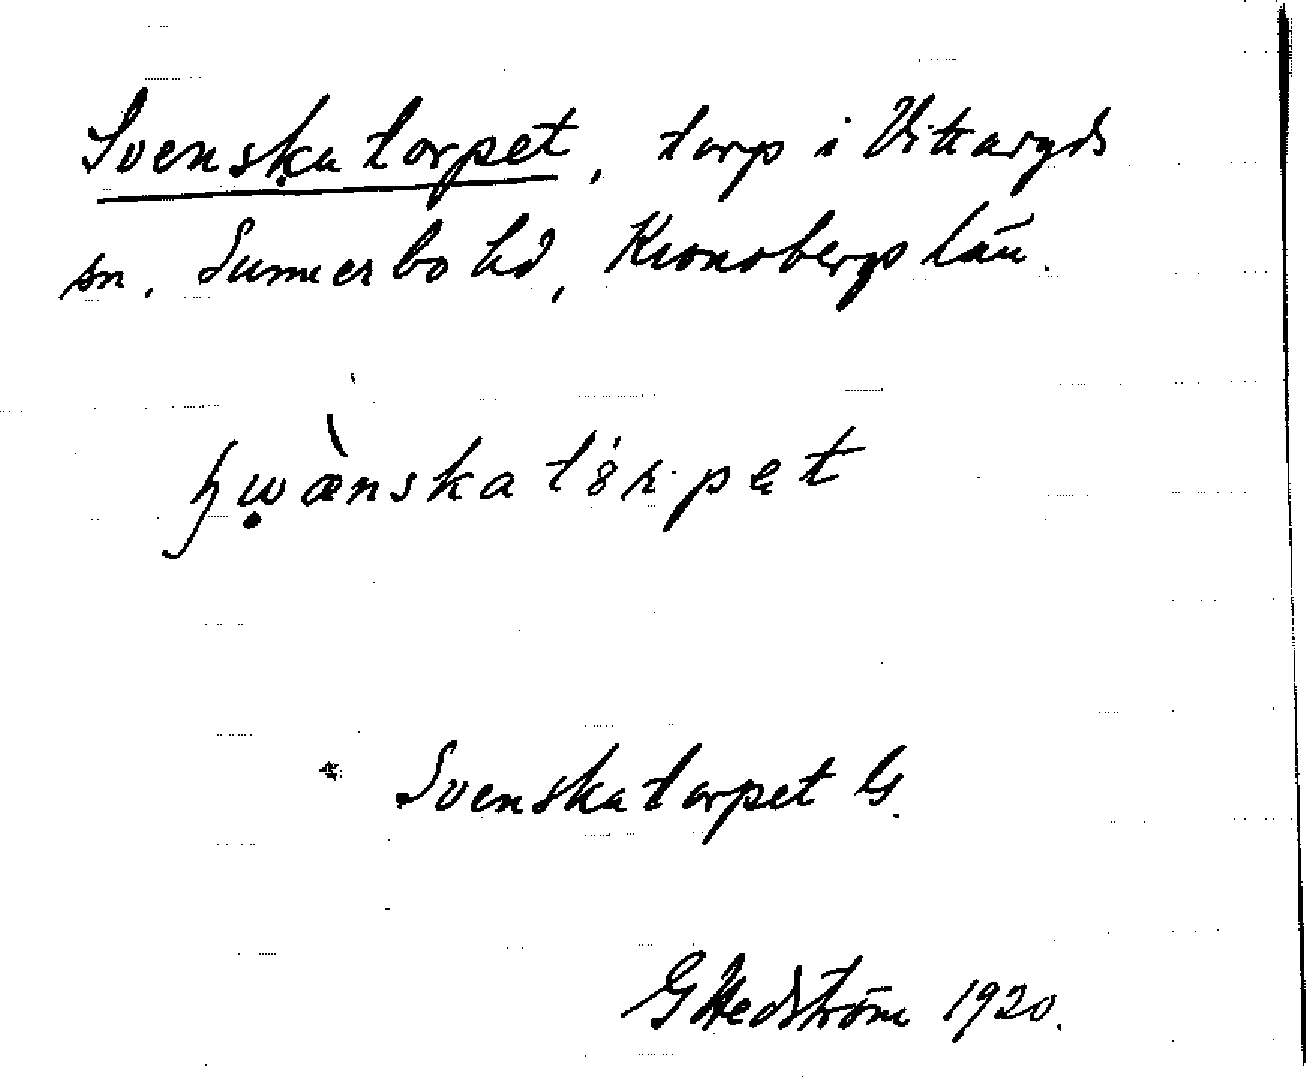 Svenskatorpet, torp i Vittaryds
sn. Sunnerbo hd, Kronobergs län.
* Svenskatorpet G.
G Hedström 1920.